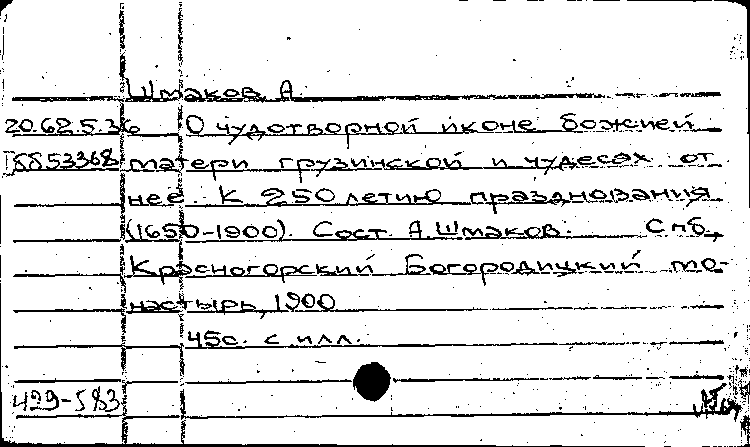 Шмаков А.
20.62.5.36 О чудотворной иконе божией
матери грузинской и чудесах от
нее. К 250летию празднования
(1650-1900). Сост. А.Шмаков. Спб.,
Красногорский Богородицкий мо-
настырь, 1900
45с. с илл.
429-583